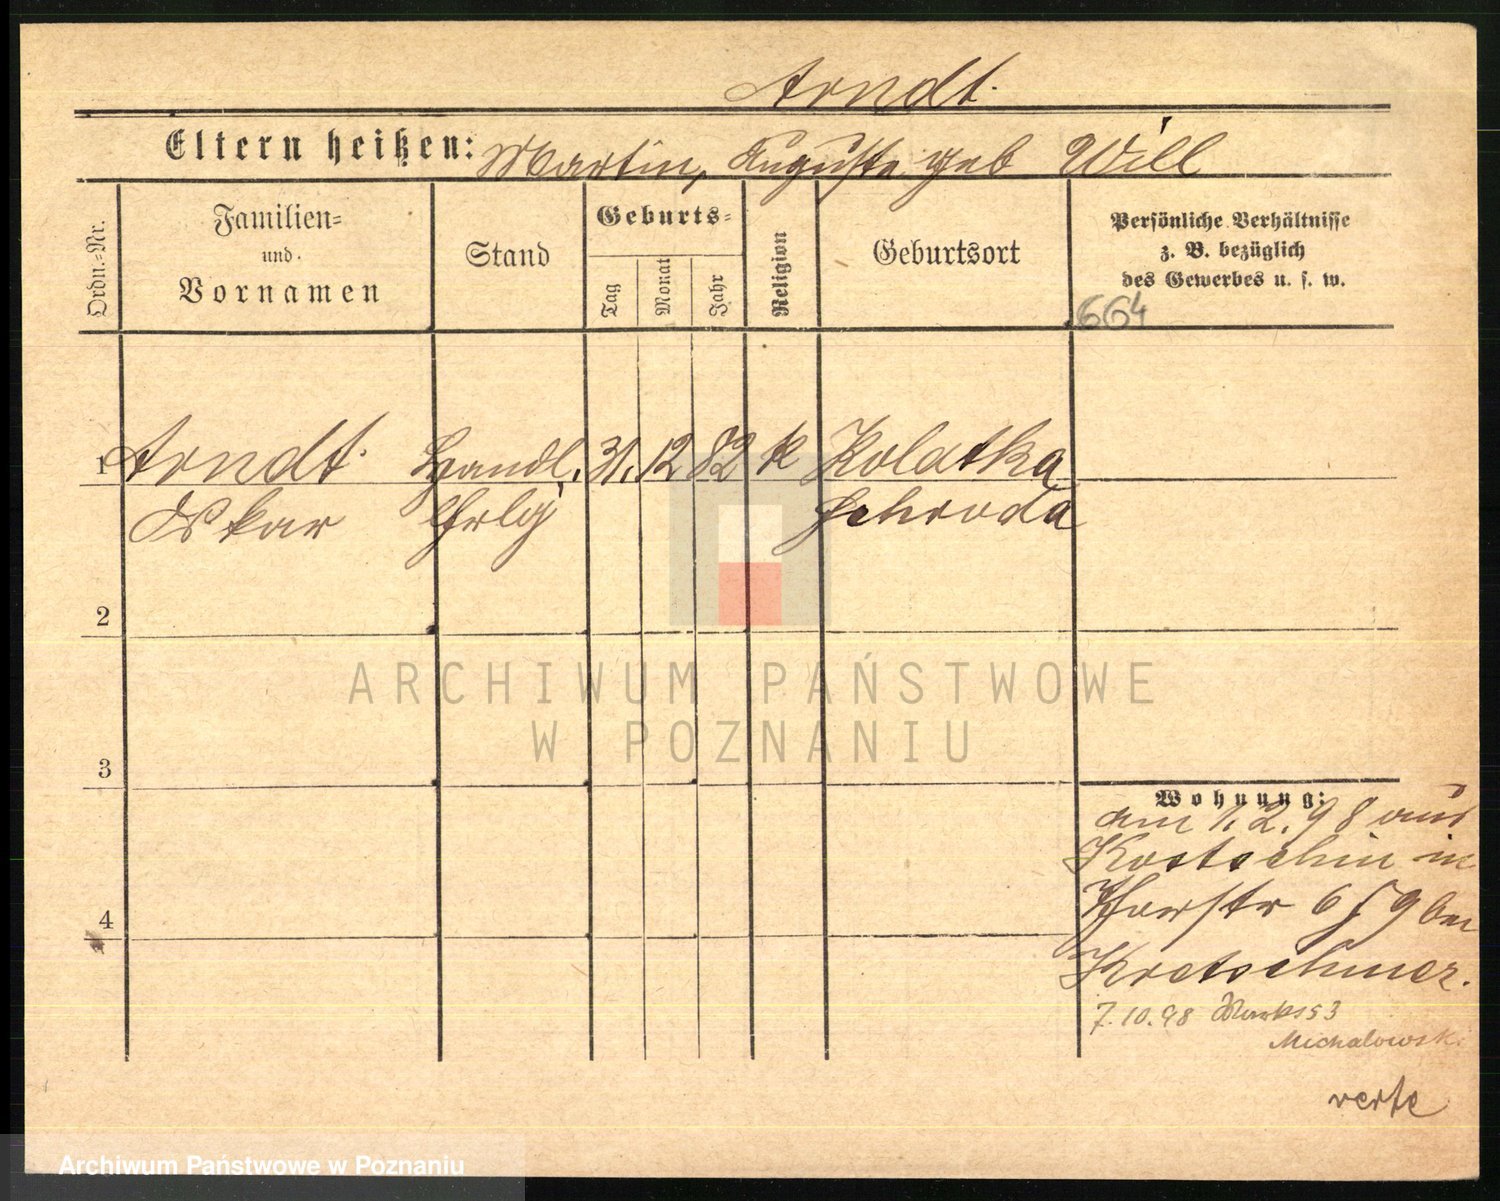 Arndt.
Eltern heißen: Martin, Auguste geb Will
Ordn.=Nr.
Familien=
und
Vornamen
Stand
Geburts=
Tag
Monat
Jahr
Religion
Geburtsort
Persönliche Verhältnisse
z. B. bezüglich
des Gewerbes u. s. w.
664
1 Arndt. Handl. 31. 12 82 k Kolatka
Oskar Schroda
2
ARCHIWUM PAŃSTWOWE
W POZNANIU
3
Wohnung:
am 1.2.98 aus
Kostschin in
6 bei
Kretschmer.
7.10.98 53
Michalowski
4
verte
Archiwum Państwowe w Poznaniu